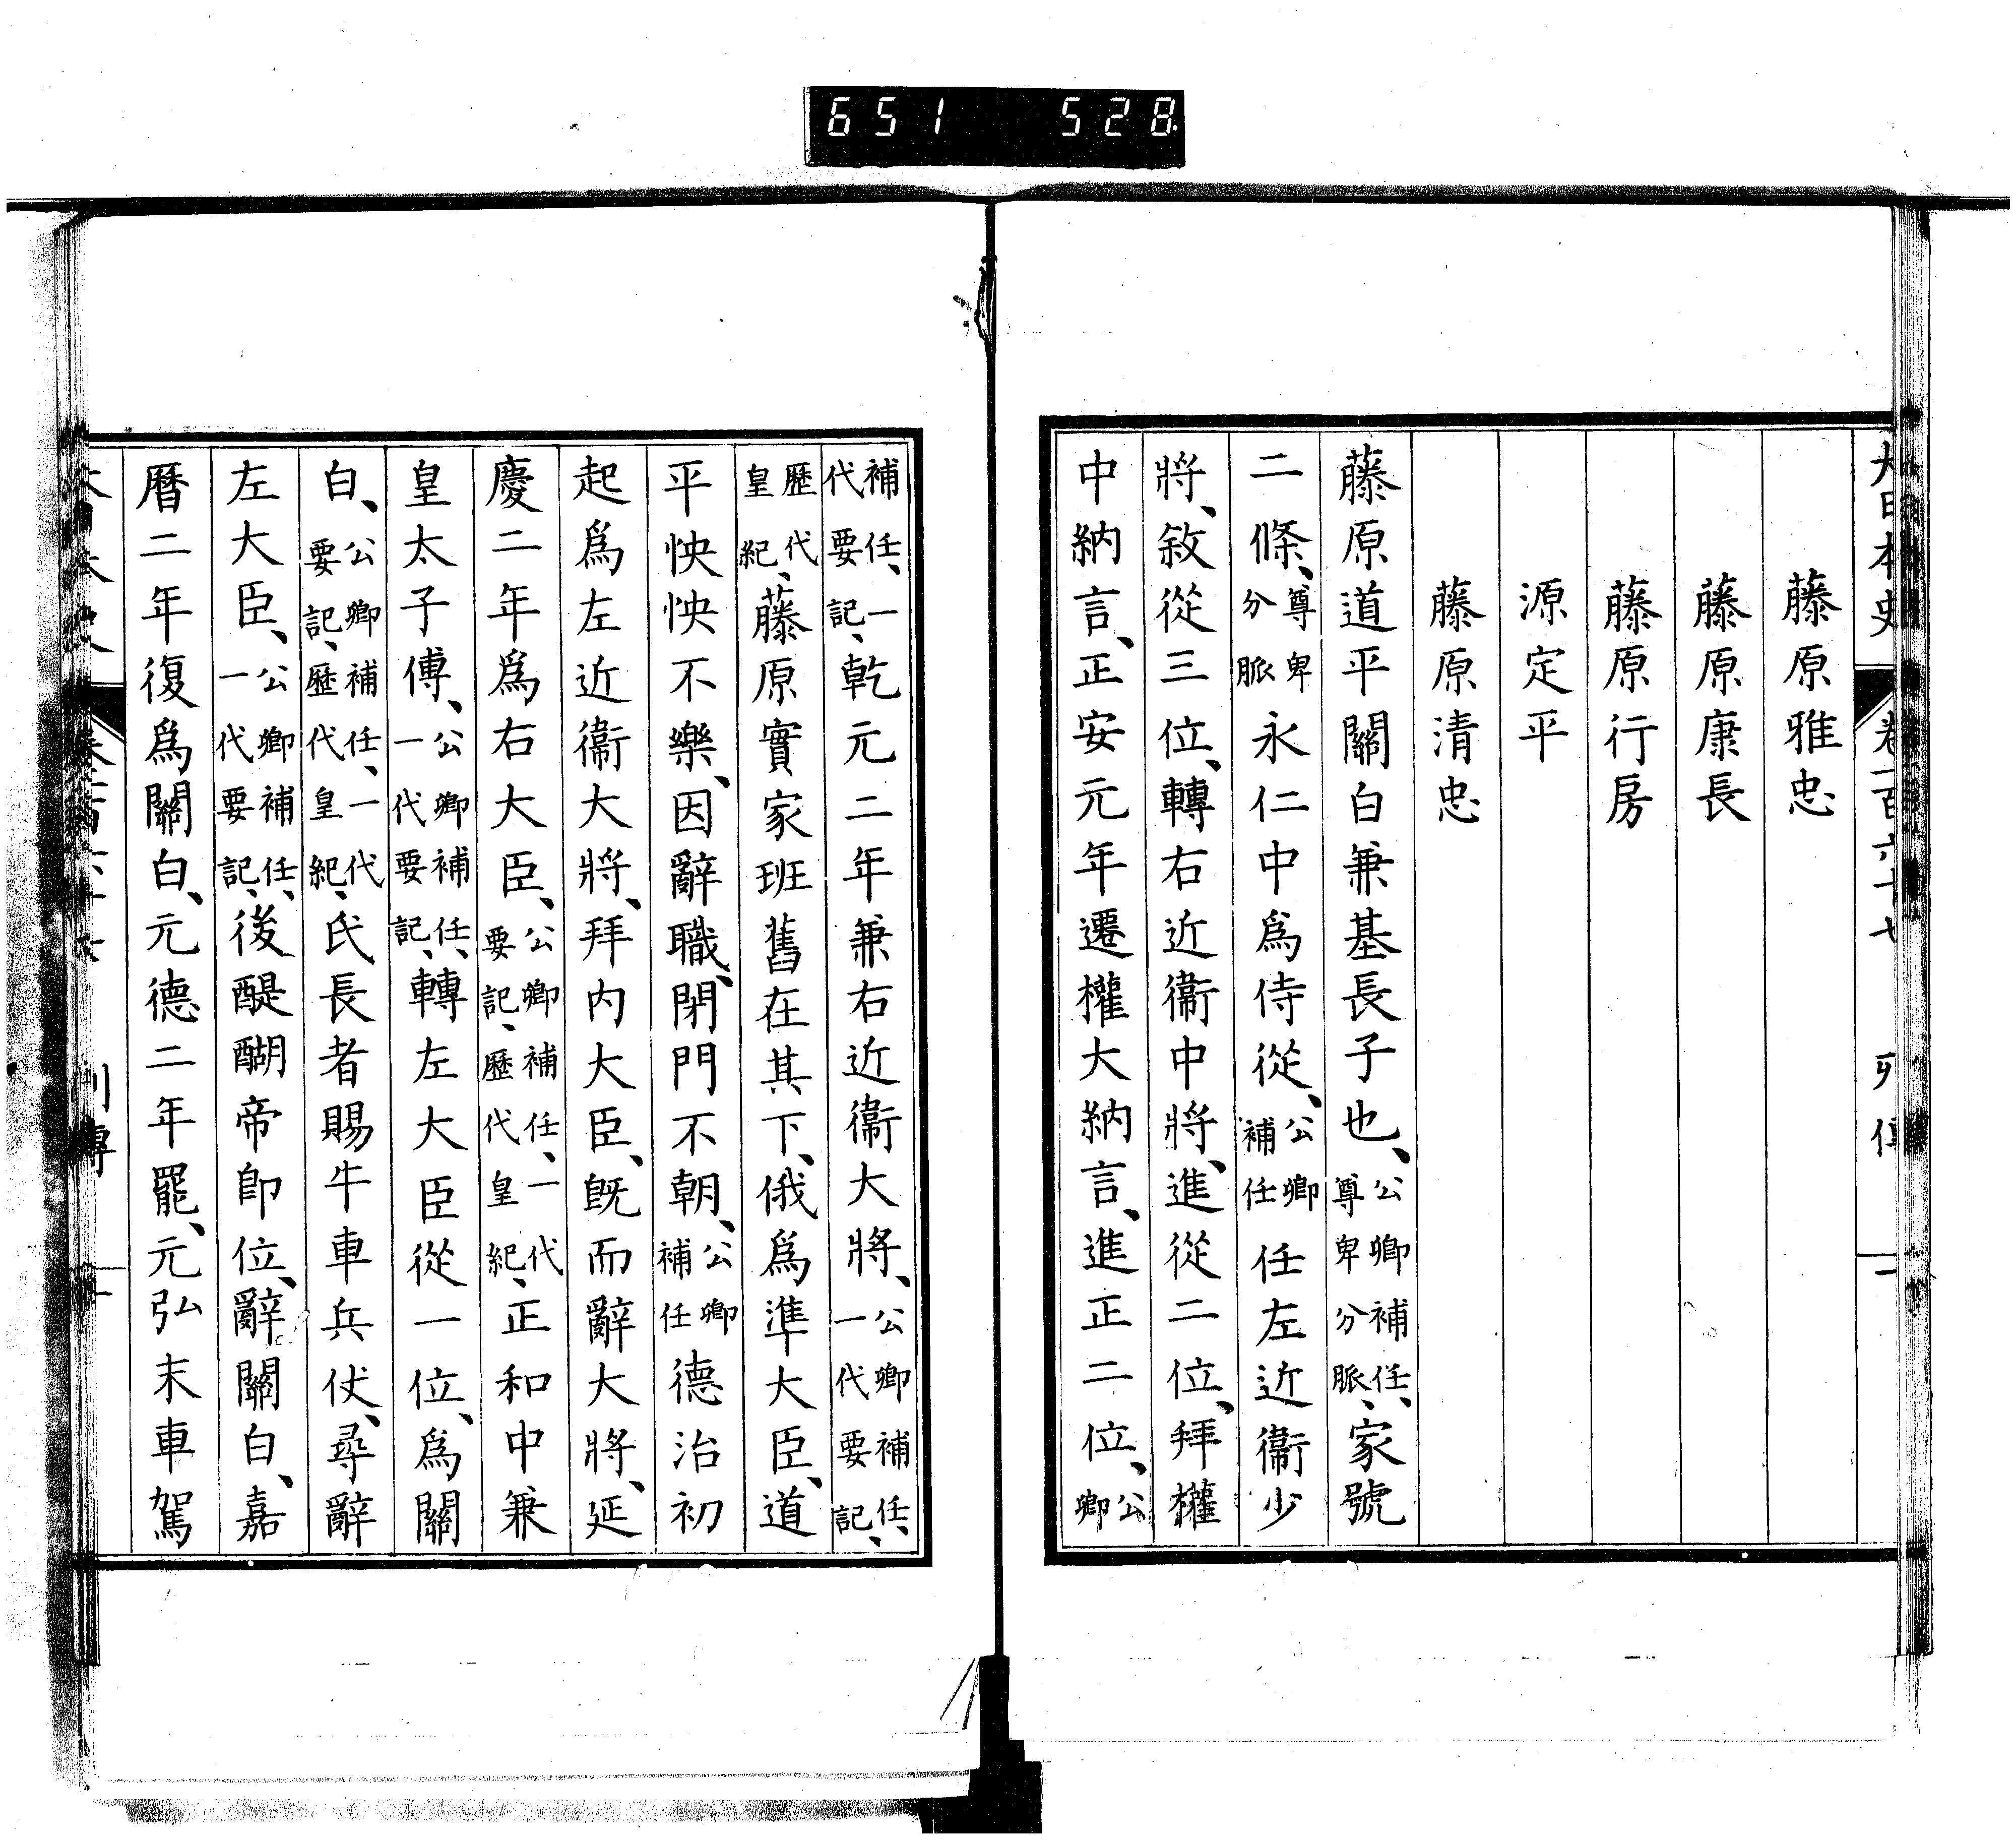 651 528
大日本史 卷一百六十七 列傳 一
藤原雅忠
藤原康長
藤原行房
源定平
藤原清忠
藤原道平關白兼基長子也、公卿補任、尊卑分脈、家號
二條、尊卑分脈永仁中爲侍從、公卿補任任左近衞少
將、敘從三位、轉右近衞中將、進從二位、拜權
中納言、正安元年遷權大納言、進正二位、公卿
補任、一代要記、乾元二年兼右近衞大將、公卿補任、一代要記、
歷代皇紀、藤原實家班舊在其下、俄爲準大臣、道
平怏怏不樂、因辭職、閉門不朝、公卿補任德治初
起爲左近衞大將、拜内大臣、旣而辭大將、延
慶二年爲右大臣、公卿補任、一代要記、歷代皇紀、正和中兼
皇太子傅、公卿補任、一代要記、轉左大臣從一位、爲關
白、公卿補任、一代要記、歷代皇紀、氏長者賜牛車兵仗、尋辭
左大臣、公卿補任、一代要記、後醍醐帝卽位、辭關白、嘉
曆二年復爲關白、元德二年罷、元弘末車駕